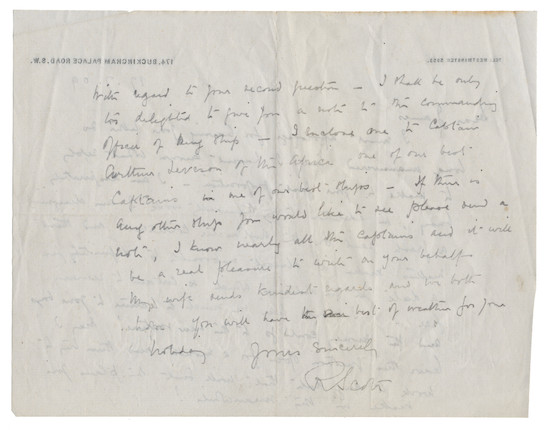 With regard to your second question – I shall be only
too delighted to give you a note to the commanding
officer of any ship – I enclose one to Captain
Arthur Leveson of the Africa, one of our best
Captains in one of our best ships – If there is
any other ship you would like to see please send a
note, I know nearly all the Captains and it will
be a real pleasure to write on your behalf
My wife sends kindest regards and we both
hope you will have the best of weather for your
holiday
Yours Sincerely
R Scott
174, BUCKINGHAM PALACE ROAD, S.W.